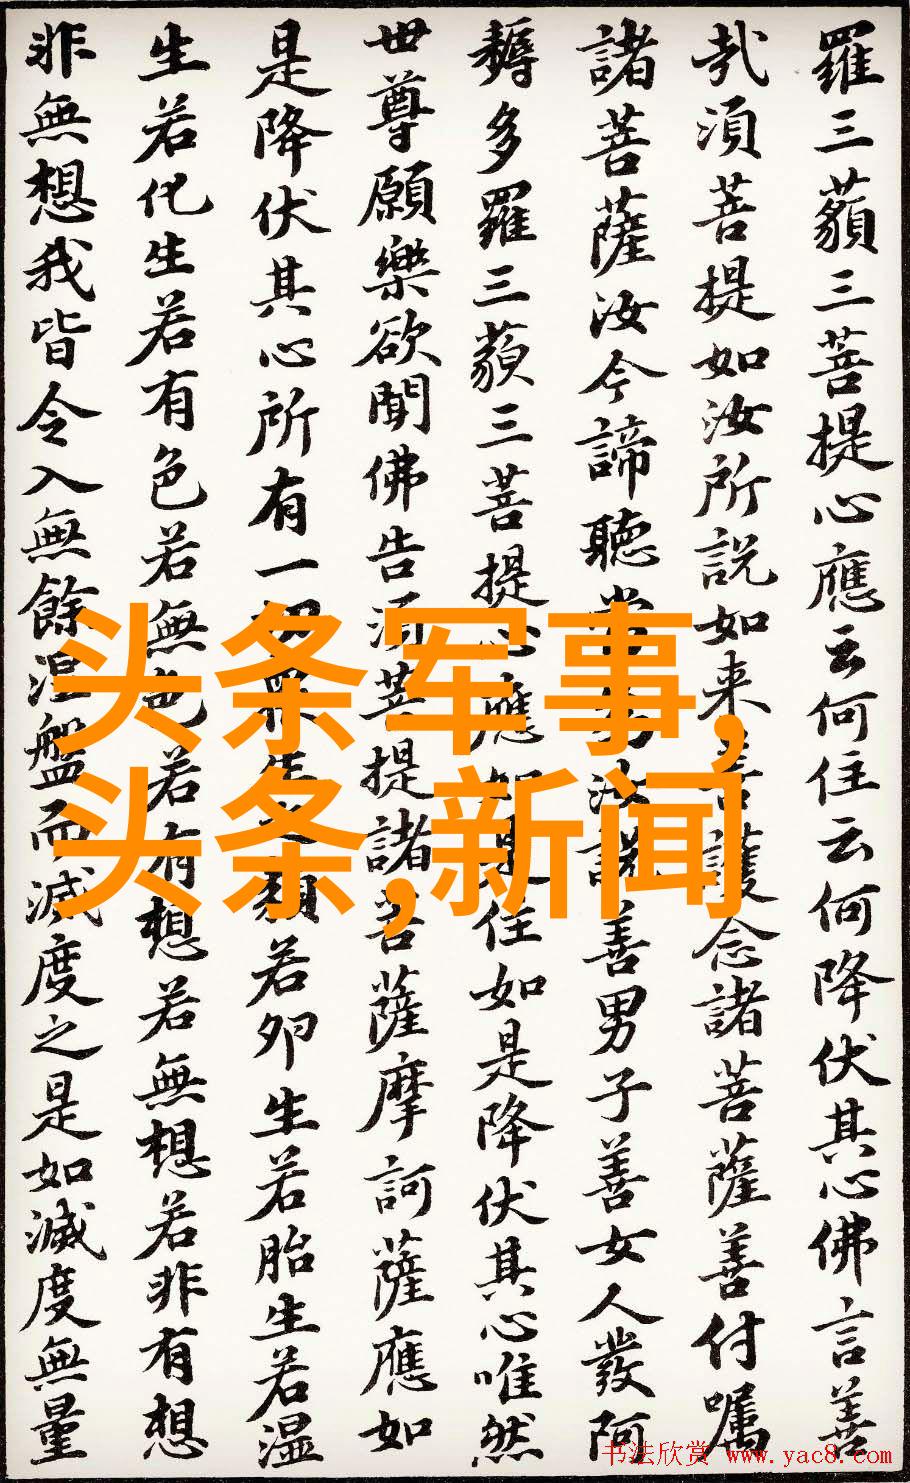 羅三藐三菩提心應云何住云何降伏其心佛言善
哉須菩提如汝所説如来善護念諸菩薩善付嘱
諸菩薩汝今諦聽當汝説善男子善女人發阿
耨多羅三藐三菩提心應如是住如是降伏其心唯然
世尊願樂欲聞佛告須菩提諸菩薩摩訶薩應如
是降伏其心所有一切眾生類若卵生若胎生若湿
生若化生若有色若無色若有想若無想若非有想
非無想我皆令入無餘涅盤而滅度之是如滅度無量
头条军事,
头条,新闻
书法欣赏 www.yac8.com